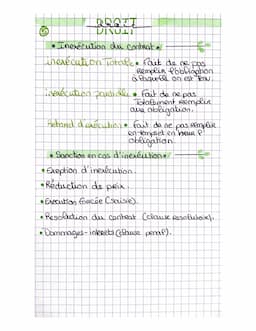 DROIT
• Inexécution du contrat •
inexécution Totale • Fait de ne pas
remplir l'obligation
à laquelle on est tenu.
inexécution partielle • Fait de ne pas
Totalement remplir
une obligation.
retard d'exécution • Fait de ne pas remplir
en temps et en heure l'
obligation.
• Sanction en cas d'inexécution •
• Exeption d'inexécution.
• Réduction de prix.
• Execution forcée (saisie).
• Resolution du contrat (clause resolutoire).
• Dommages-interêts (clause penal).